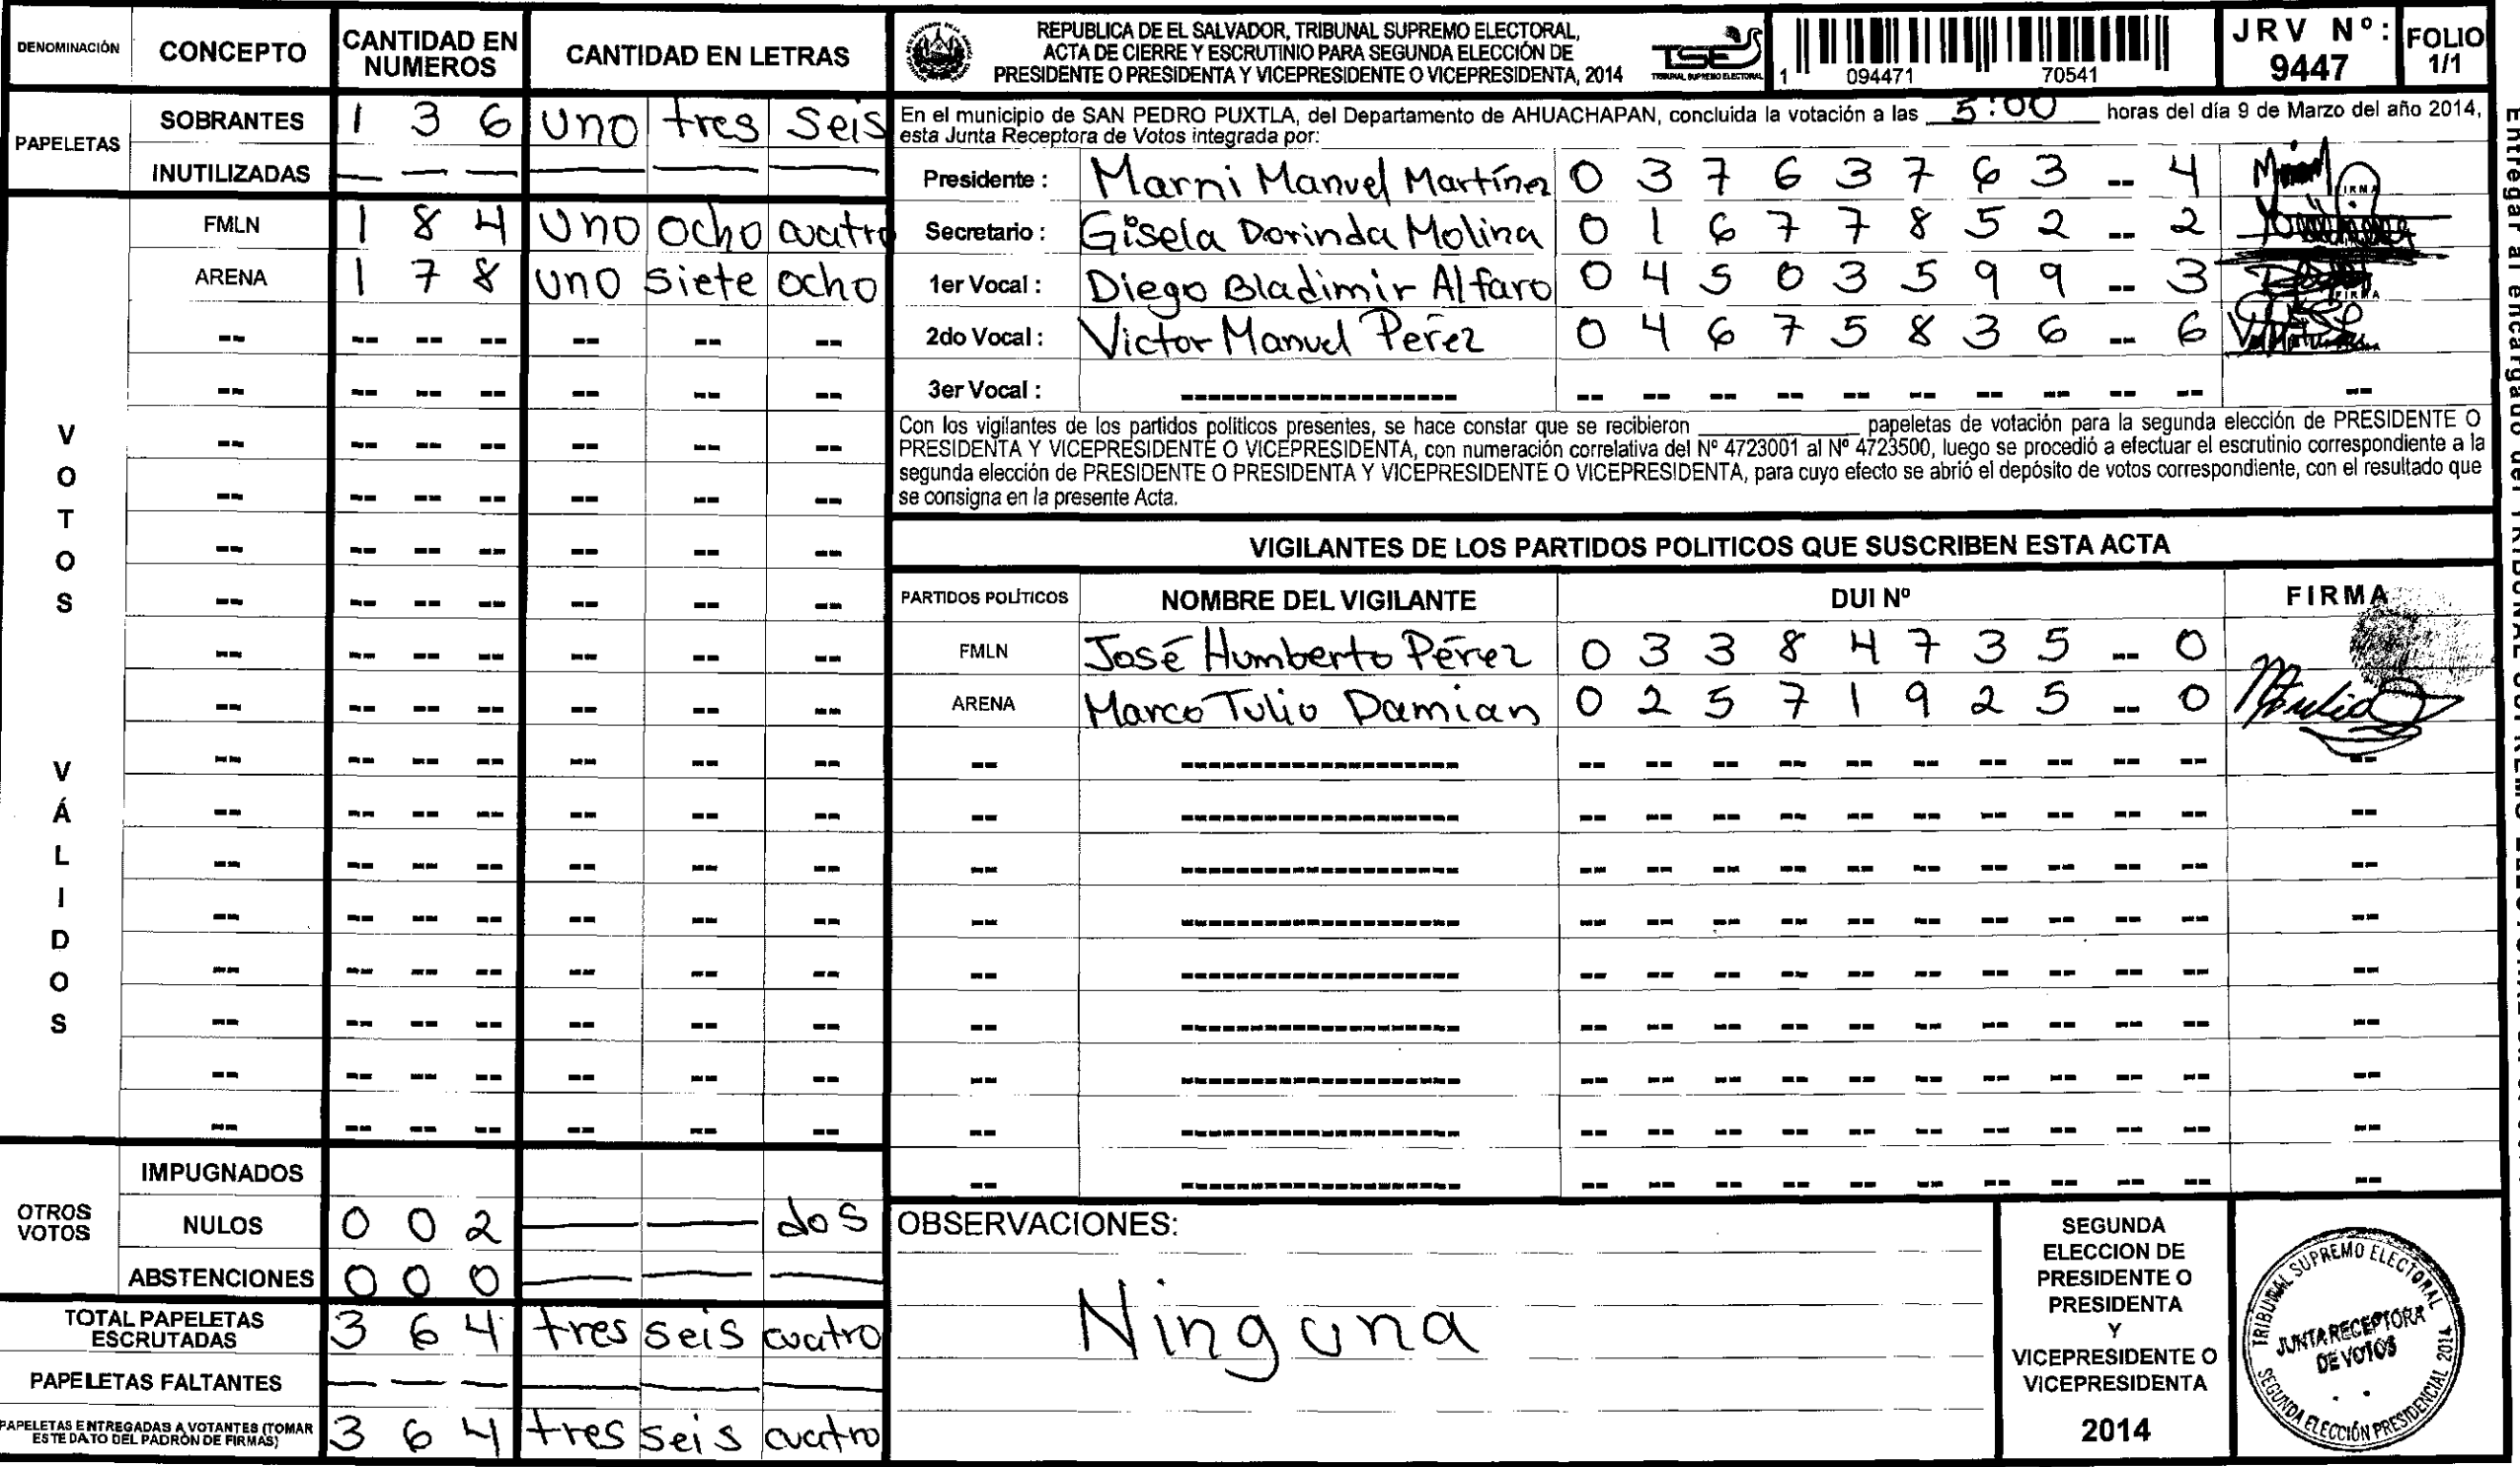 DENOMINACIÓN CONCEPTO CANTIDAD EN NUMEROS CANTIDAD EN LETRAS
PAPELETAS
SOBRANTES 1 3 6 uno tres seis
INUTILIZADAS — — — — — —
VOTOS VÁLIDOS
FMLN 1 8 4 uno ocho cuatro
ARENA 1 7 8 uno siete ocho
OTROS VOTOS
IMPUGNADOS
NULOS 0 0 2 — — dos
ABSTENCIONES 0 0 0 — — —
TOTAL PAPELETAS ESCRUTADAS 3 6 4 tres seis cuatro
PAPELETAS FALTANTES — — — — — —
PAPELETAS ENTREGADAS A VOTANTES (TOMAR ESTE DATO DEL PADRÓN DE FIRMAS) 3 6 4 tres seis cuatro
REPUBLICA DE EL SALVADOR, TRIBUNAL SUPREMO ELECTORAL,
ACTA DE CIERRE Y ESCRUTINIO PARA SEGUNDA ELECCIÓN DE
PRESIDENTE O PRESIDENTA Y VICEPRESIDENTE O VICEPRESIDENTA, 2014
TSE
TRIBUNAL SUPREMO ELECTORAL
1 094471 70541
JRV Nº: 9447
FOLIO 1/1
En el municipio de SAN PEDRO PUXTLA, del Departamento de AHUACHAPAN, concluida la votación a las 5:00 horas del día 9 de Marzo del año 2014,
esta Junta Receptora de Votos integrada por:
Presidente : Marni Manuel Martínez 0 3 7 6 3 7 6 3 -- 4
Secretario : Gisela Dorinda Molina 0 1 6 7 7 8 5 2 -- 2
1er Vocal : Diego Bladimir Alfaro 0 4 5 0 3 5 9 9 -- 3
2do Vocal : Victor Manuel Peréz 0 4 6 7 5 8 3 6 -- 6
3er Vocal :
Con los vigilantes de los partidos políticos presentes, se hace constar que se recibieron ________ papeletas de votación para la segunda elección de PRESIDENTE O
PRESIDENTA Y VICEPRESIDENTE O VICEPRESIDENTA, con numeración correlativa del Nº 4723001 al Nº 4723500, luego se procedió a efectuar el escrutinio correspondiente a la
segunda elección de PRESIDENTE O PRESIDENTA Y VICEPRESIDENTE O VICEPRESIDENTA, para cuyo efecto se abrió el depósito de votos correspondiente, con el resultado que
se consigna en la presente Acta.
VIGILANTES DE LOS PARTIDOS POLITICOS QUE SUSCRIBEN ESTA ACTA
PARTIDOS POLÍTICOS NOMBRE DEL VIGILANTE DUI Nº FIRMA
FMLN José Humberto Pérez 0 3 3 8 4 7 3 5 -- 0
ARENA Marco Tulio Damian 0 2 5 7 1 9 2 5 -- 0
OBSERVACIONES:
Ninguna
SEGUNDA
ELECCION DE
PRESIDENTE O
PRESIDENTA
Y
VICEPRESIDENTE O
VICEPRESIDENTA
2014
TRIBUNAL SUPREMO ELECTORAL
JUNTA RECEPTORA
DE VOTOS
SEGUNDA ELECCIÓN PRESIDENCIAL 2014
Entregar al encargado del TRIBUNAL SUPREMO